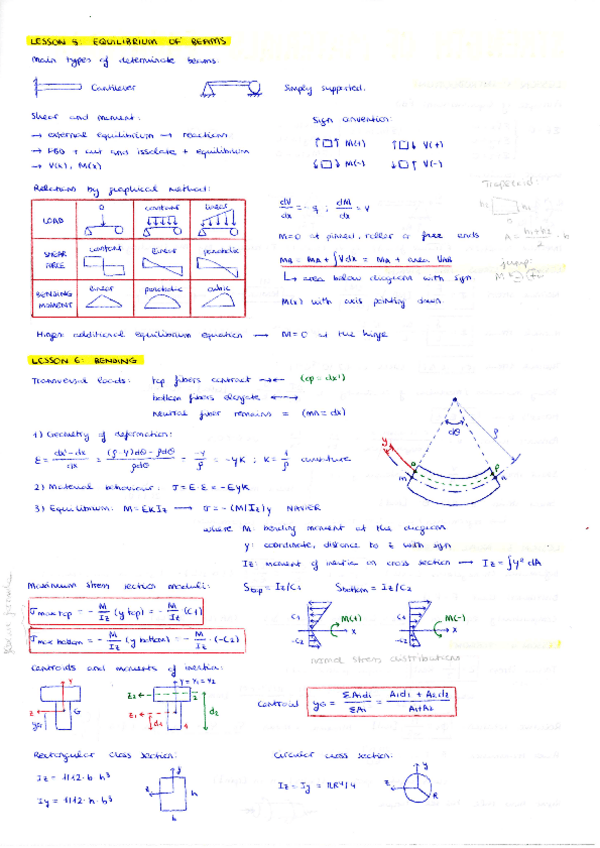 LESSON 5: EQUILIBRIUM OF BEAMS
Main types of determinate beams:
Cantilever
Simply supported.
Shear and moment:
→ external equilibrium → reactions
→ FBD + cut and issolate + equilibrium
→ V(x), M(x)
Sign convention:
M(+) V(+)
M(-) V(-)
Relations by graphical method:
LOAD 0 constant linear
SHEAR constant linear parabolic
BENDING MOMENT linear parabolic cubic
dV/dx = -q ; dM/dx = V
M=0 at pinned, roller or free ends
MB = MA + ∫Vdx = MA + area VAB
↳ area below diagram with sign
M(x) with axis pointing down.
Trapezoid:
h2 h1
b
A = (h1+h2)/2 · b
jump:
M
Hinges: additional equilibrium equation → M=0 at the hinge
LESSON 6: BENDING
Transversal loads: top fibers contract →← (op = dx')
bottom fibers elongate ←→
neutral fiber remains = (mn = dx)
1) Geometry of deformation:
ε = (dx'-dx)/dx = ((ρ-y)dθ - ρdθ)/ρdθ = -y/ρ = -yK ; K = 1/ρ curvature
2) Material behaviour: σ = E·ε = -EyK
3) Equilibrium: M = EKIz → σ = -(M/Iz)y NAVIER
where M: bending moment at the diagram
y: coordinate, distance to z with sign
Iz: moment of inertia in cross section → Iz = ∫y² dA
dθ
ρ
y
o p
m n
Maximum stress section moduli:
Stop = Iz/C1 Sbottom = Iz/C2
σmax top = - M/Iz (y top) = - M/Iz (C1)
σmax bottom = - M/Iz (y bottom) = - M/Iz · (-C2)
C1 M(+) x -C2
C1 M(-) x -C2
normal stress distributions
Centroids and moments of inertia:
y z G yG
y=y1=y2
z2 2 z1 1 d1 d2
Centroid yG = ΣAidi/ΣAi = (A1d1 + A2d2)/(A1+A2)
Rectangular cross section:
Iz = 1/12 · b · h³
Iy = 1/12 · h · b³
y z h b
Circular cross section:
Iz = Iy = πR⁴/4
y z R